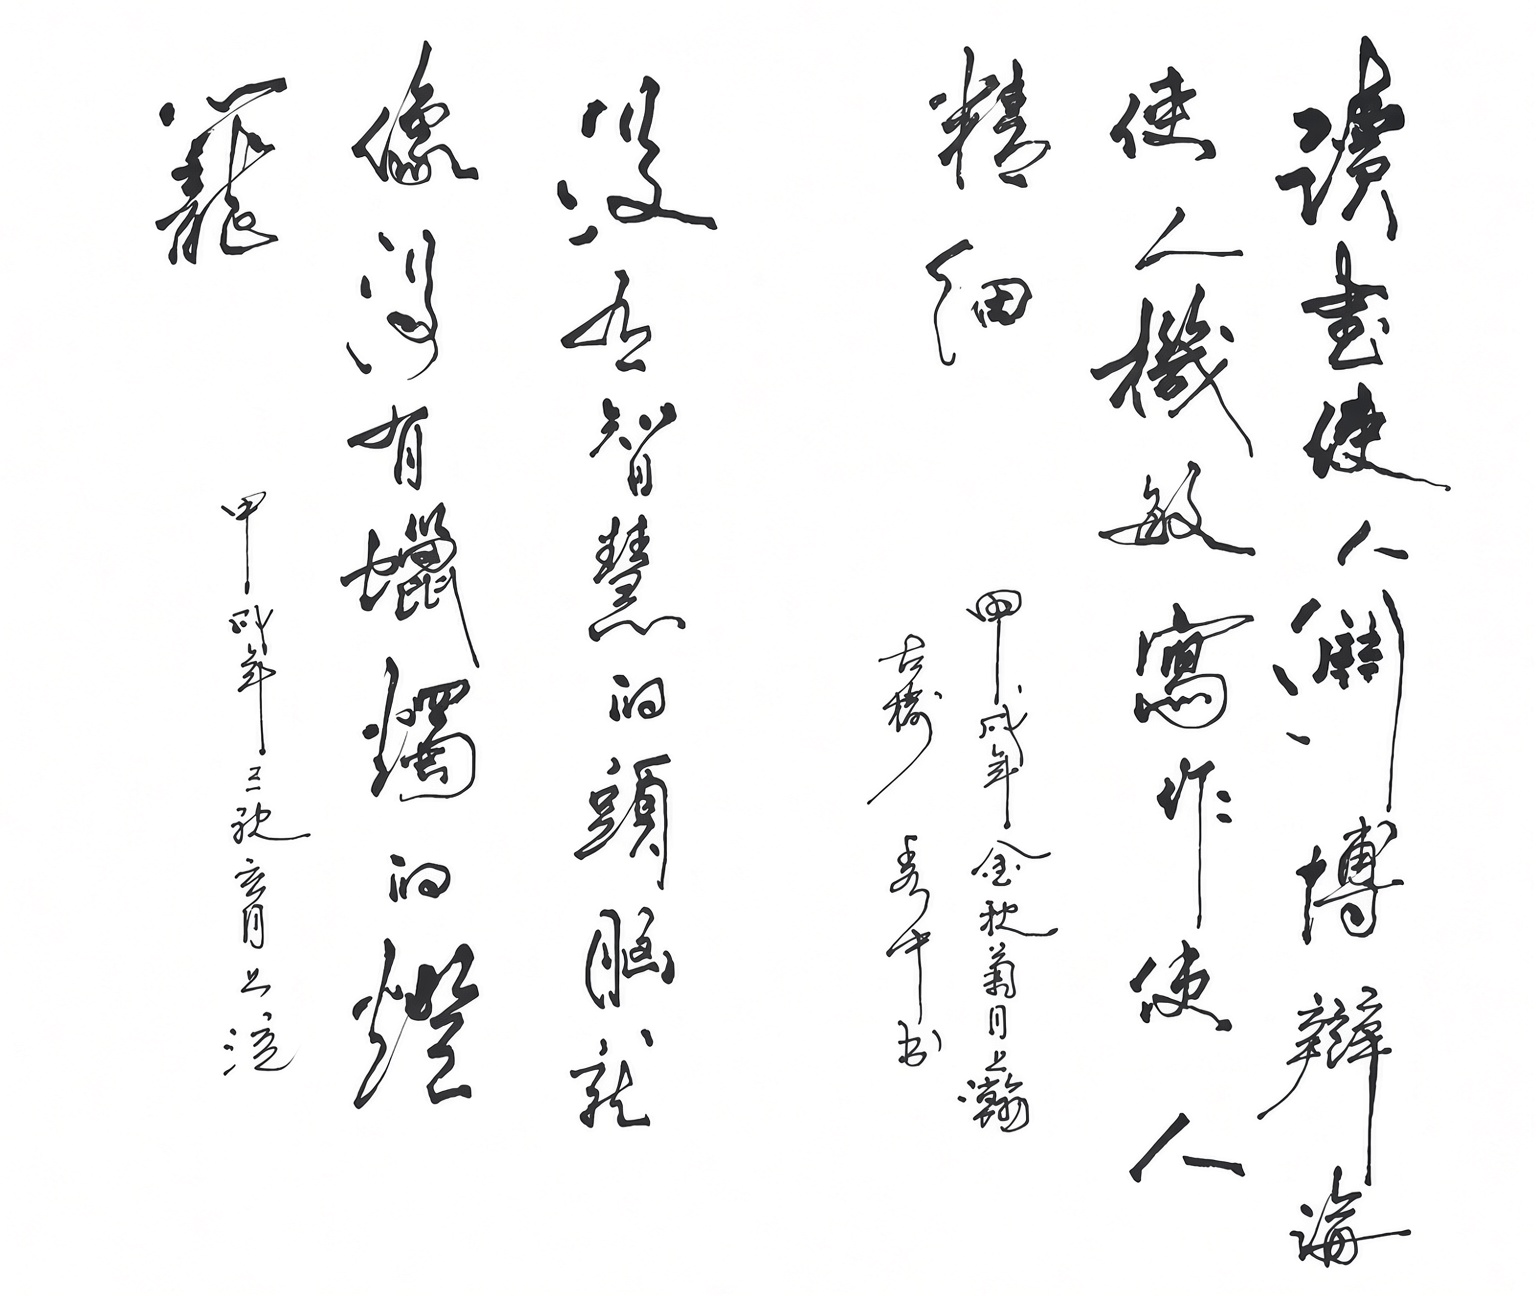 讀書使人淵博辯論
使人機敏寫作使人
精細
甲戌年金秋菊月上瀚
古樹 秀中书
沒有智慧的頭腦就
像沒有蠟燭的燈
籠
甲戌年三秋亥月上浣